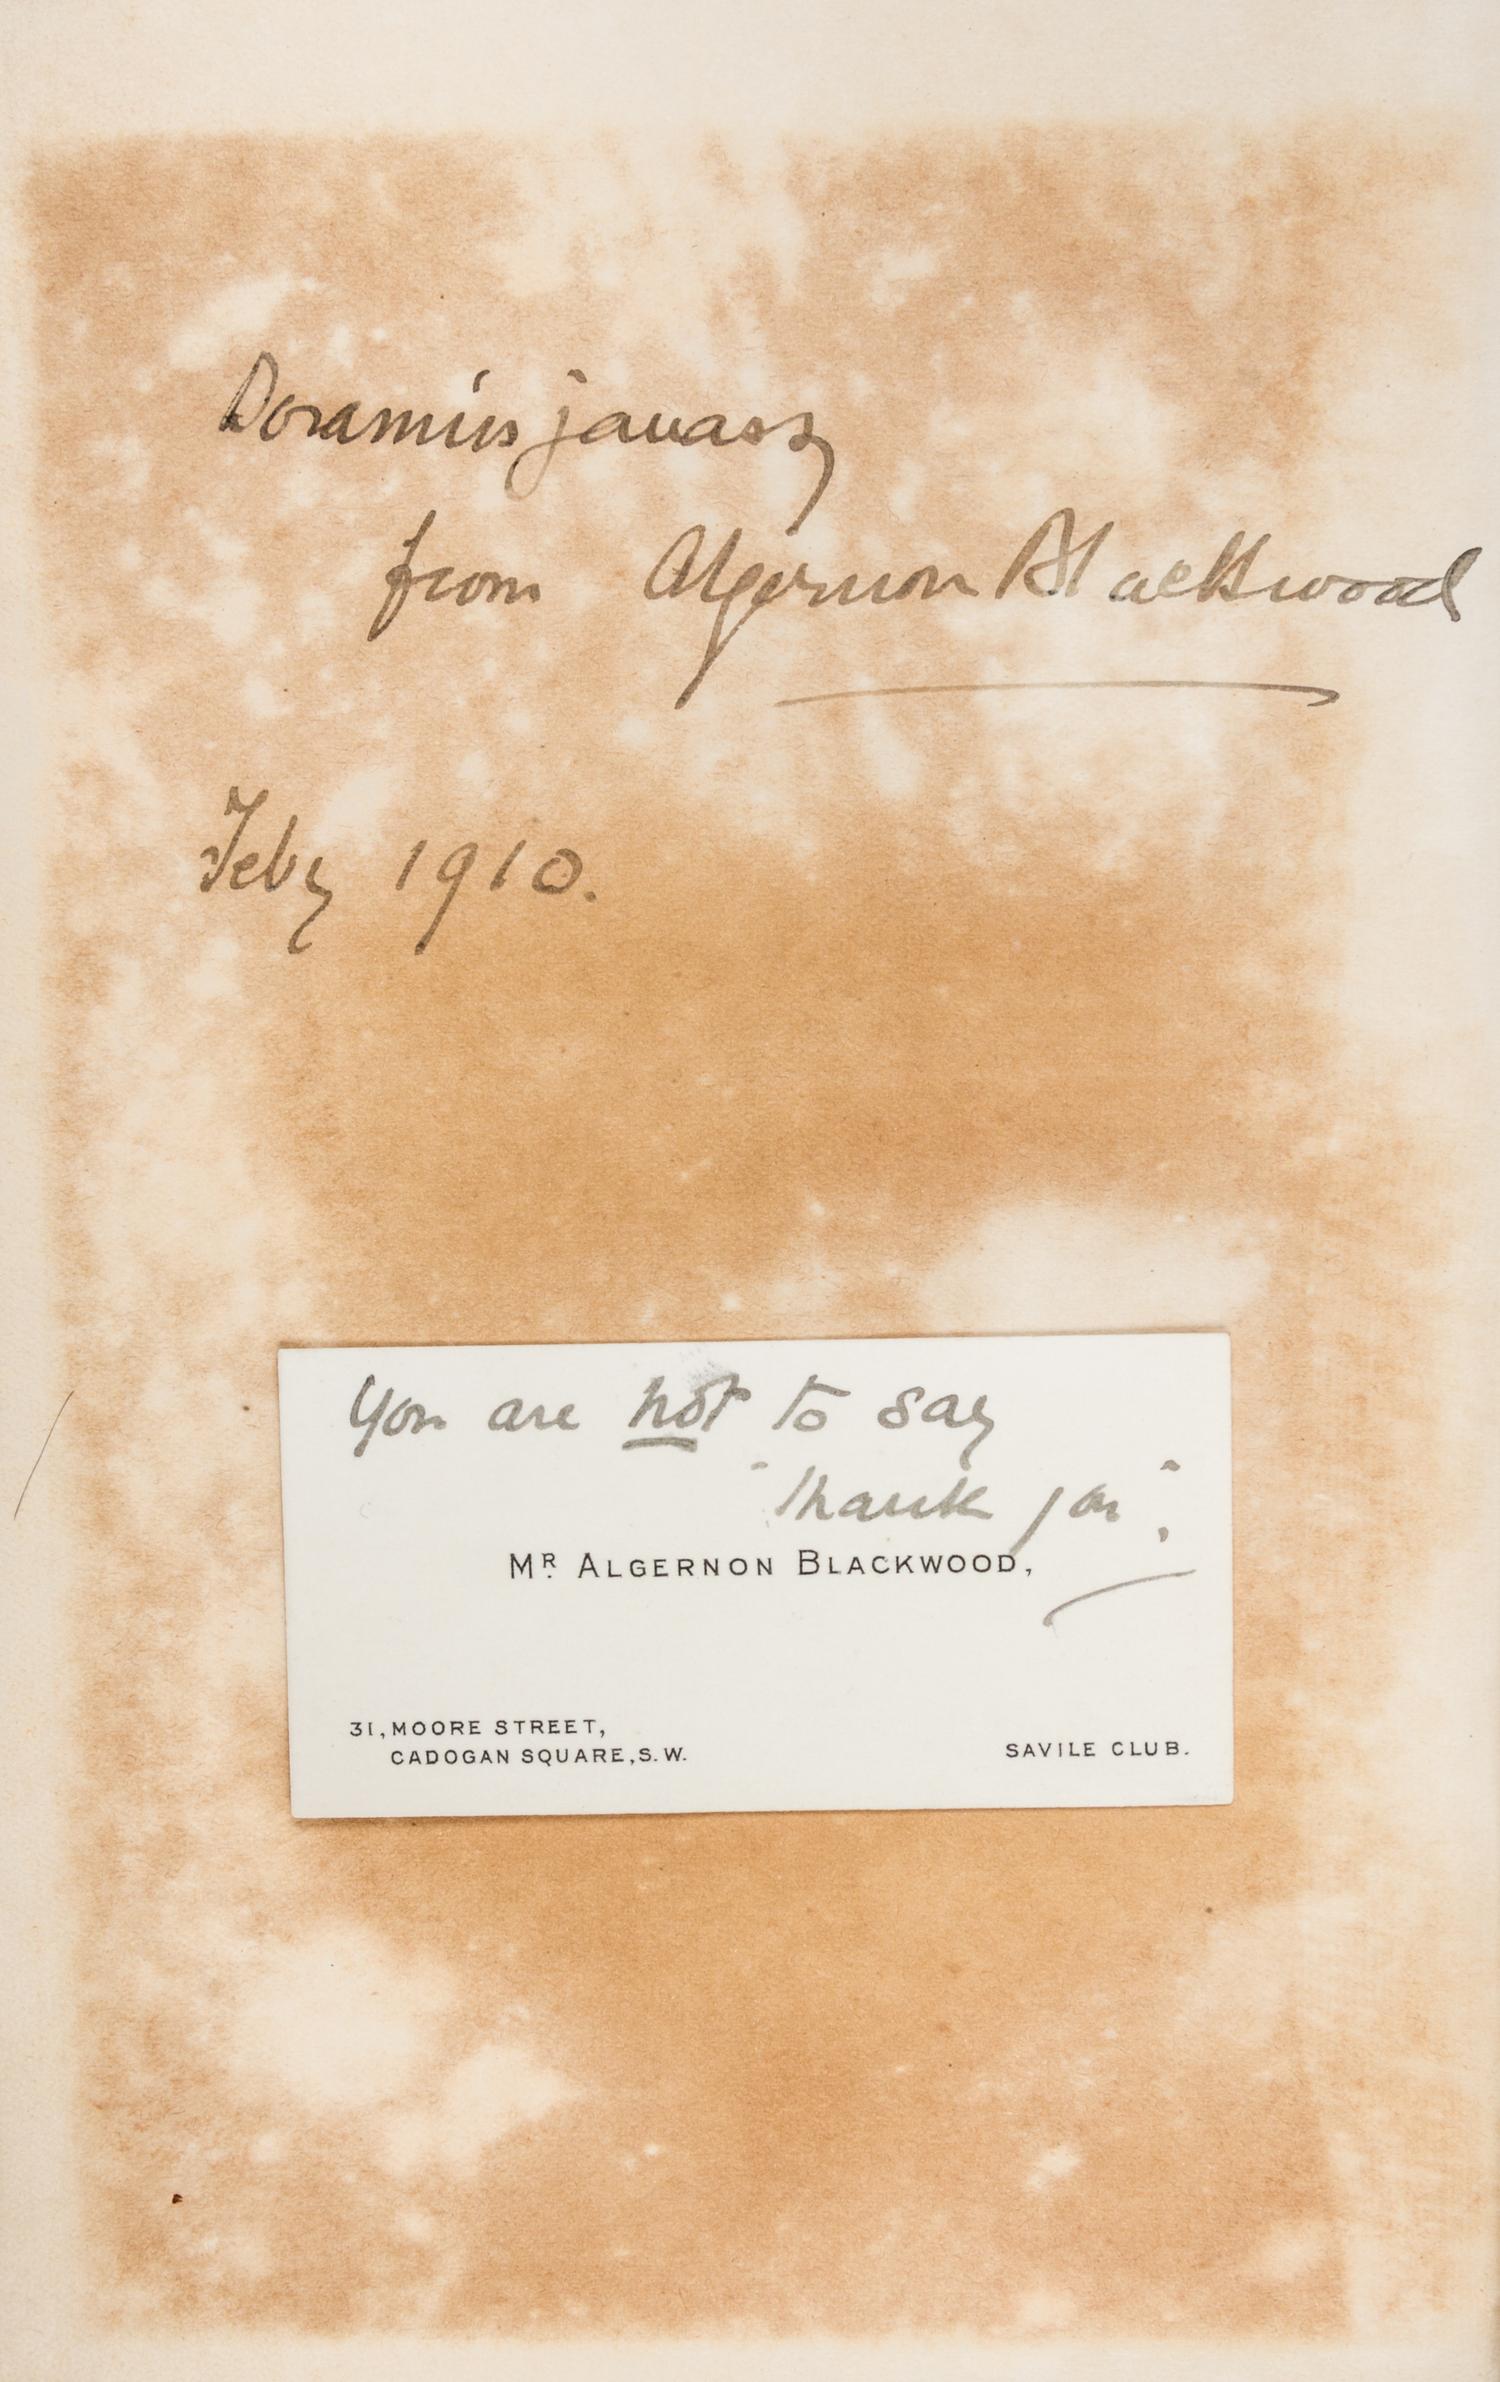 from Algernon Blackwood
Feby 1910.
You are not to say
"Thank you".
MR. ALGERNON BLACKWOOD,
31, MOORE STREET,
CADOGAN SQUARE, S.W.
SAVILE CLUB.